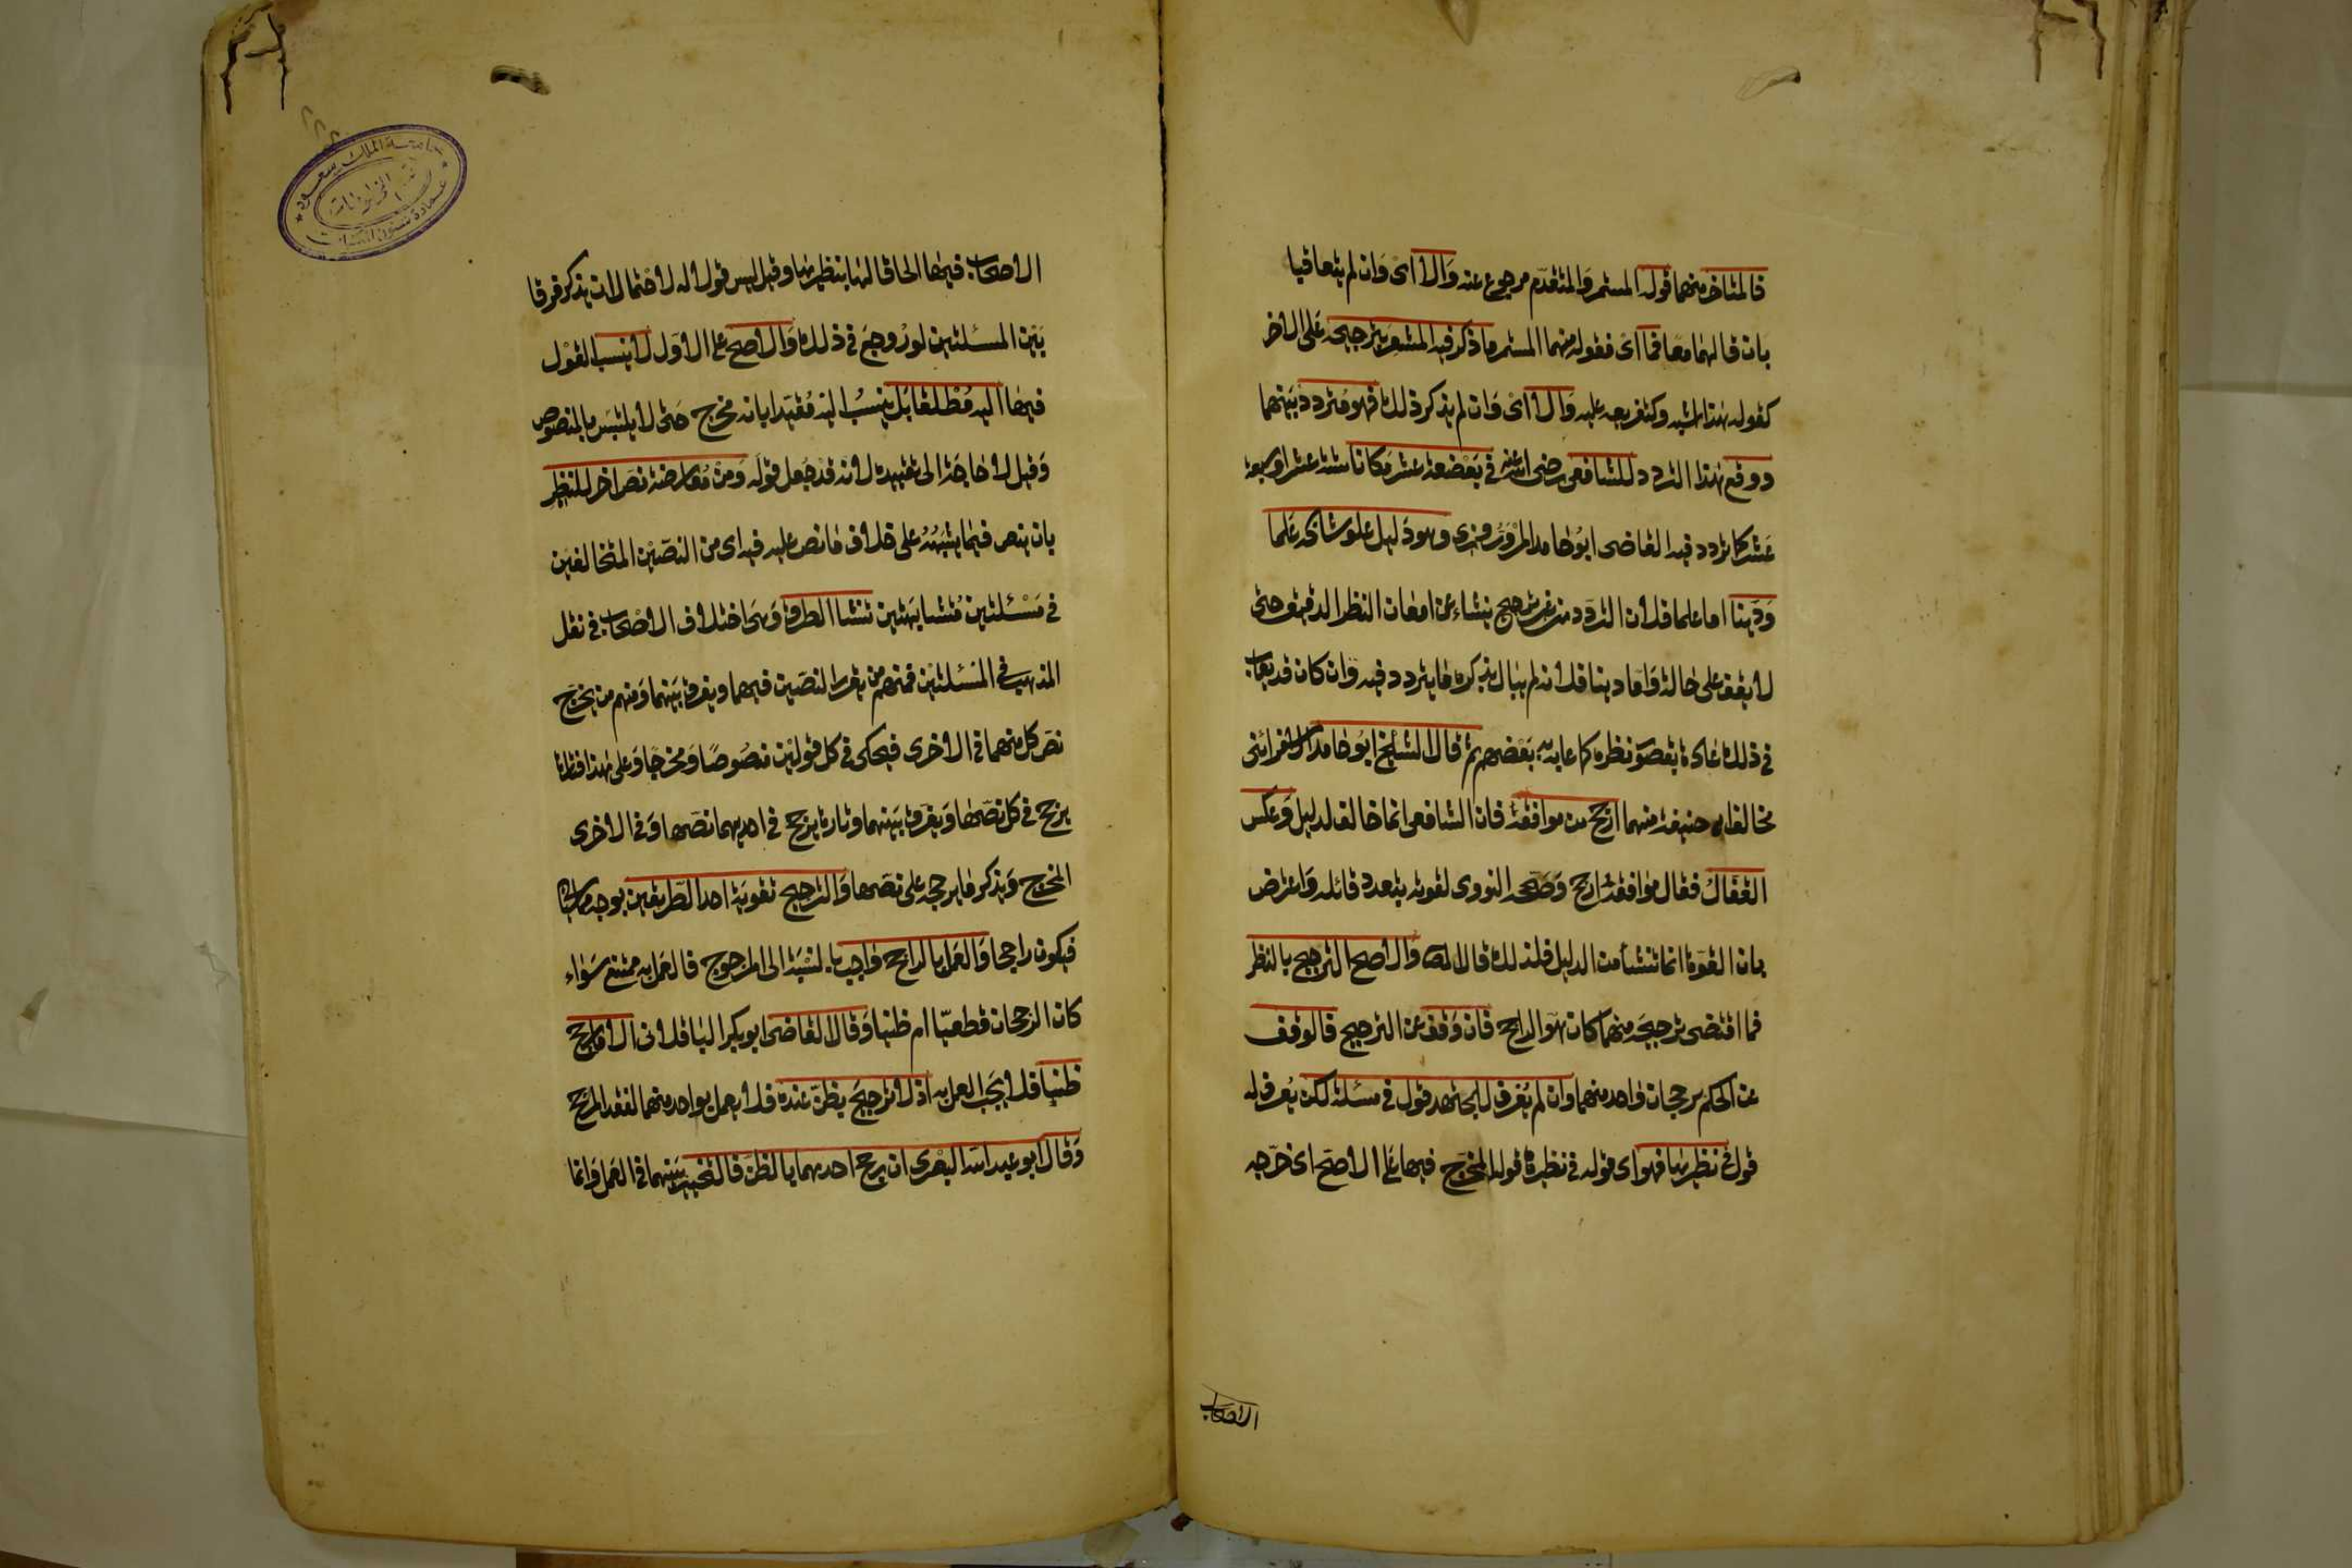 فالمتاخر منهما قوله المستمر والمتقدم مرجوع عنه والا اى وان لم يتعاقبا
بان قالهما معا فما اى فقوله منهما المستمر ما ذكر فيه المشعر بترجيحه على الاخر
كقوله هذا اشبه وكتفريعه عليه والا اى وان لم يذكر ذلك فهو متردد بينهما
ووقع هذا التردد للشافعى رضى الله عنه فى بضعة عشر مكانا ستة عشر او سبعة
عشر كما تردد فيه القاضى ابو حامد المروروزى وهو دليل علو شانه علما
ودينا اما علما فلان التردد من غير ترجيح ينشاء عن امعان النظر الدقيق حتى
لا يقف على حالة واما دينا فلانه لم يبال بذكره ما يتردد فيه وان كان قد يعاب
فى ذلك عادة بقصور نظره كما عابه به بعضهم ثم قال الشيخ ابو حامد الاسفراينى
مخالف ابى حنيفة منهما ارجح من موافقه فان الشافعى انما خالفه لدليل وعكس
القفال فقال موافقه ارجح وصححه النووى لقوته بتعدد قائله واعترض
بان القوة انما تنشأ من الدليل فلذلك قال المص والاصح الترجيح بالنظر
فما اقتضى ترجيحه منهما كان هو الراجح فان وقف عن الترجيح فالوقف
عن الحكم برجحان واحد منهما وان لم يعرف للمجتهد قول فى مسئلة لكن يعرف له
قول فى نظيرها فهو اى قوله فى نظيرها قوله المخرج فيها على الاصح اى خرجه
الاصحاب
الاصحاب فيها الحاقا لها بنظيرها وقيل ليس قولا له لاحتمال ان يذكر فرقا
بين المسئلتين لو روجع فى ذلك والاصح على الاول لا ينسب القول
فيها اليه مطلقا بل ينسب اليه مقيدا بانه مخرج حتى لا يلتبس بالمنصوص
وقيل لا حاجة الى تقييده لانه قد جعل قوله ومن معارضة نص اخر للنظير
بان ينص فيما يشبهه على خلاف ما نص عليه فيه اى من النصين المتخالفين
فى مسئلتين متشابهتين تنشا الطرق وهى اختلاف الاصحاب فى نقل
المذهب فى المسئلتين فمنهم من يقرر النصين فيهما ويفرق بينهما ومنهم من يخرج
نص كل منهما فى الاخرى فيحكى فى كل قولين منصوصا ومخرجا وعلى هذا فتارة
يرجح فى كل نصها ويفرق بينهما وتارة يرجح فى احديهما نصها وفى الاخرى
المخرج ويذكر ما يرجحه على نصها والترجيح تقوية احد الطريقين بوجه ما
فيكون راجحا والعمل بالراجح واجب بالنسبة الى المرجوح فالعمل به ممتنع سواء
كان الرجحان قطعيا ام ظنيا وقال القاضى ابو بكر الباقلانى الا ما رجح
ظنيا فلا يجب العمل به اذ لا ترجيح بظن عنده فلا يعمل بواحد منهما لفقد المرجح
وقال ابو عبد الله البصرى ان رجح احدهما بالظن فالتخيير بينهما فى العمل وانما
جامعة الملك سعود
عمادة شئون المكتبات
قسم المخطوطات